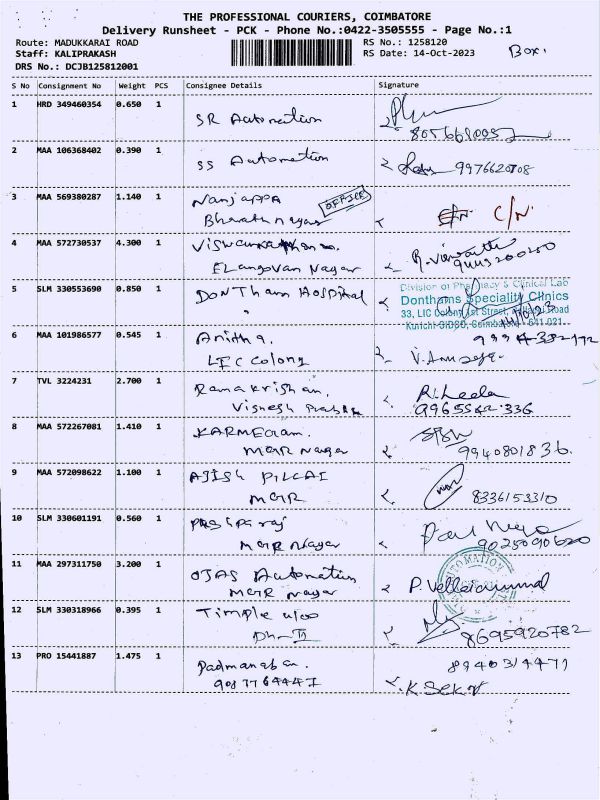 THE PROFESSIONAL COURIERS, COIMBATORE
Delivery Runsheet - PCK - Phone No.:0422-3505555 - Page No.:1
Route: MADUKKARAI ROAD RS No.: 1258120
Staff: KALIPRAKASH RS Date: 14-Oct-2023 Box.
DRS No.: DCJB125812001
S No Consignment No Weight PCS Consignee Details Signature
1 HRD 349460354 0.650 1
SR Automation
2 MAA 106368402 0.390 1
SS Automation 9976620708
3 MAA 569380287 1.140 1
Nanjappa OFFICE
Bharath nagar C/N
4 MAA 572730537 4.300 1
Elangovan Nagar
5 SLM 330553690 0.850 1
DONTham HOSPital
Division of Pharmacy & Clinical Lab
Donthams Speciality Clinics
33, LIC Colony 1st Street, Road
Kurichi SIDCO, Coimbatore - 641 021.
6 MAA 101986577 0.545 1
Anitha.
LIC Colony
7 TVL 3224231 2.700 1
Ramakrishan. R. Leela
8 MAA 572267081 1.410 1
MGR Nagar 9940801836.
9 MAA 572098622 1.100 1
AJISH PILLAI
MGR 8336153310
10 SLM 330601191 0.560 1
MGR Nagar 9025090620
11 MAA 297311750 3.200 1
OJAS Automation
MGR nagar P. Vellaiammal
12 SLM 330318966 0.395 1
Ph-II 8695920782
13 PRO 15441887 1.475 1 8940314471
Padmanaban.
9087764447 K Sekar